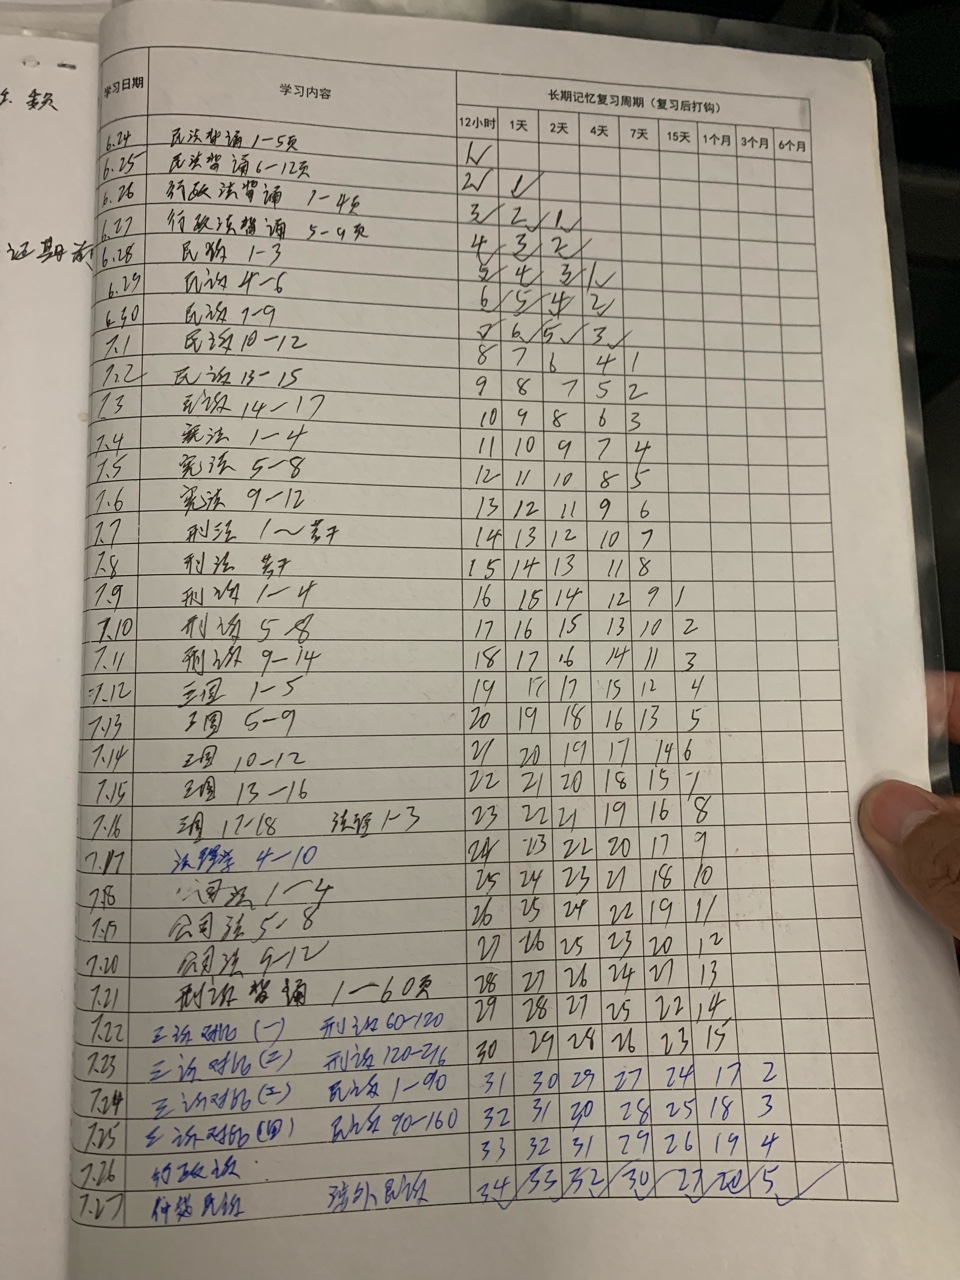 学习日期 学习内容 长期记忆复习周期（复习后打钩）
12小时 1天 2天 4天 7天 15天 1个月 3个月 6个月
6.24 民法背诵 1-5页 1✓
6.25 民法背诵 6-12页 2✓ 1✓
6.26 行政法背诵 1-4页 3✓ 2✓ 1✓
6.27 行政法背诵 5-9页 4✓ 3✓ 2✓
6.28 民诉 1-3 5✓ 4✓ 3✓ 1✓
6.29 民诉 4-6 6✓ 5✓ 4✓ 2✓
6.30 民诉 7-9 7✓ 6✓ 5✓ 3✓
7.1 民诉 10-12 8 7 6 4 1
7.2 民诉 13-15 9 8 7 5 2
7.3 民诉 14-17 10 9 8 6 3
7.4 宪法 1-4 11 10 9 7 4
7.5 宪法 5-8 12 11 10 8 5
7.6 宪法 9-12 13 12 11 9 6
7.7 刑法 1~若干 14 13 12 10 7
7.8 刑法 若干 15 14 13 11 8
7.9 刑诉 1-4 16 15 14 12 9 1
7.10 刑诉 5-8 17 16 15 13 10 2
7.11 刑诉 9-14 18 17 16 14 11 3
7.12 三国 1-5 19 17 15 12 4
7.13 三国 5-9 20 19 18 16 13 5
7.14 三国 10-12 21 20 19 17 14 6
7.15 三国 13-16 22 21 20 18 15 7
7.16 三国 17-18 法理 1-3 23 22 21 19 16 8
7.17 法理学 4-10 24 23 22 20 17 9
7.18 公司法 1-4 25 24 23 21 18 10
7.19 公司法 5-8 26 25 24 22 19 11
7.20 公司法 9-12 27 26 25 23 20 12
7.21 刑诉背诵 1-60页 28 27 26 24 21 13
7.22 三诉对比(一) 刑诉 60-120 29 28 27 25 22 14
7.23 三诉对比(二) 刑诉 120-216 30 29 28 26 23 15
7.24 三诉对比(三) 民诉 1-90 31 30 29 27 24 17 2
7.25 三诉对比(四) 民诉 90-160 32 31 30 28 25 18 3
7.26 行政诉 33 32 31 29 26 19 4
7.27 仲裁民诉 涉外民诉 34✓ 33✓ 32✓ 30✓ 27✓ 20✓ 5✓